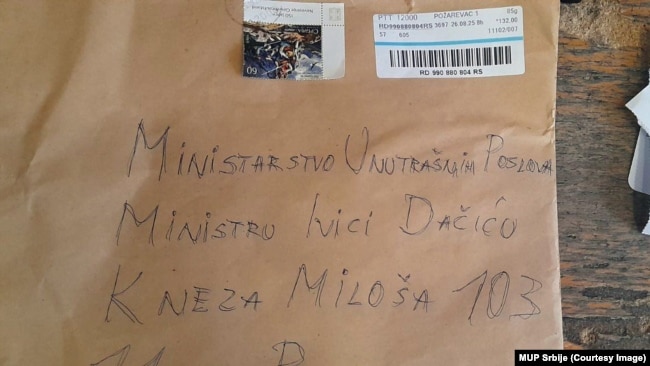 PTT 12000 POŽAREVAC 1 85g
RD990880804RS 3697 26.08.25 8h *132,00
57 605 11102/001
RD 990 880 804 RS
60
MINISTARSTVO UNUTRAŠNJIH POSLOVA
MINISTRU IVICI DAČIĆU
KNEZA MILOŠA 103
MUP Srbije (Courtesy Image)